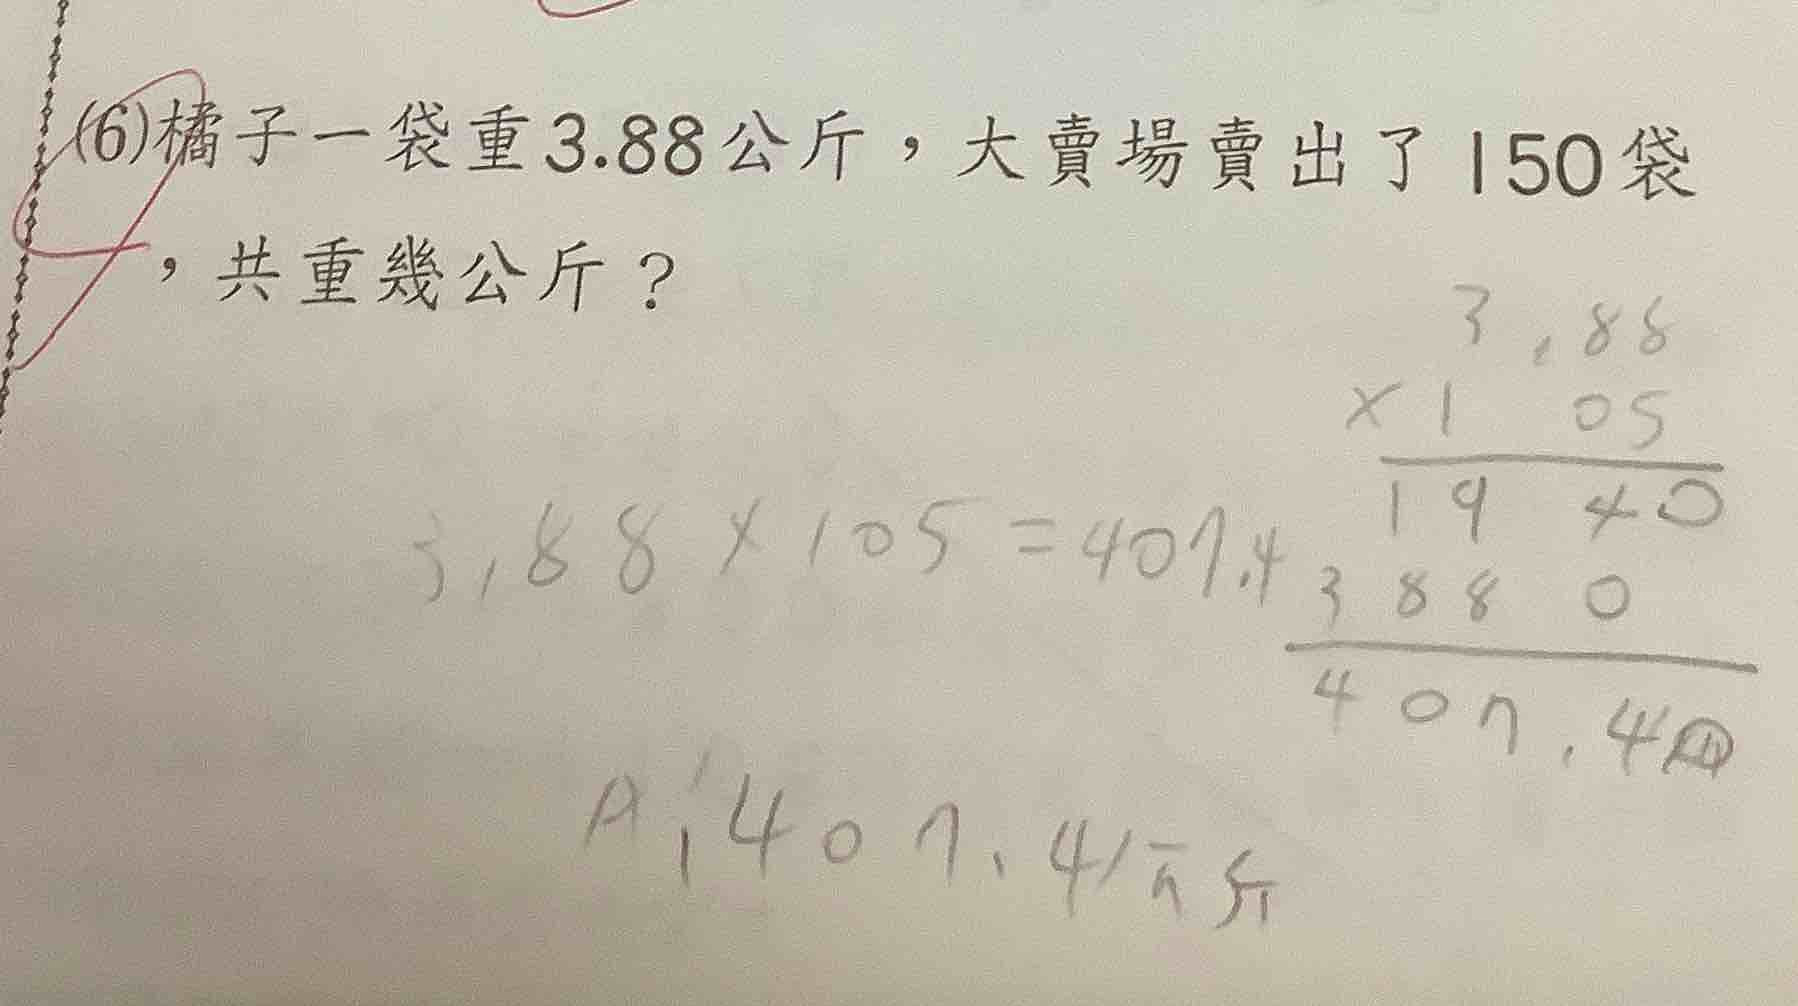 (6)橘子一袋重3.88公斤，大賣場賣出了150袋
，共重幾公斤？
3.88
×1 05
19 40
388 0
407.40
3.88×105=407.4
A:407.4公斤